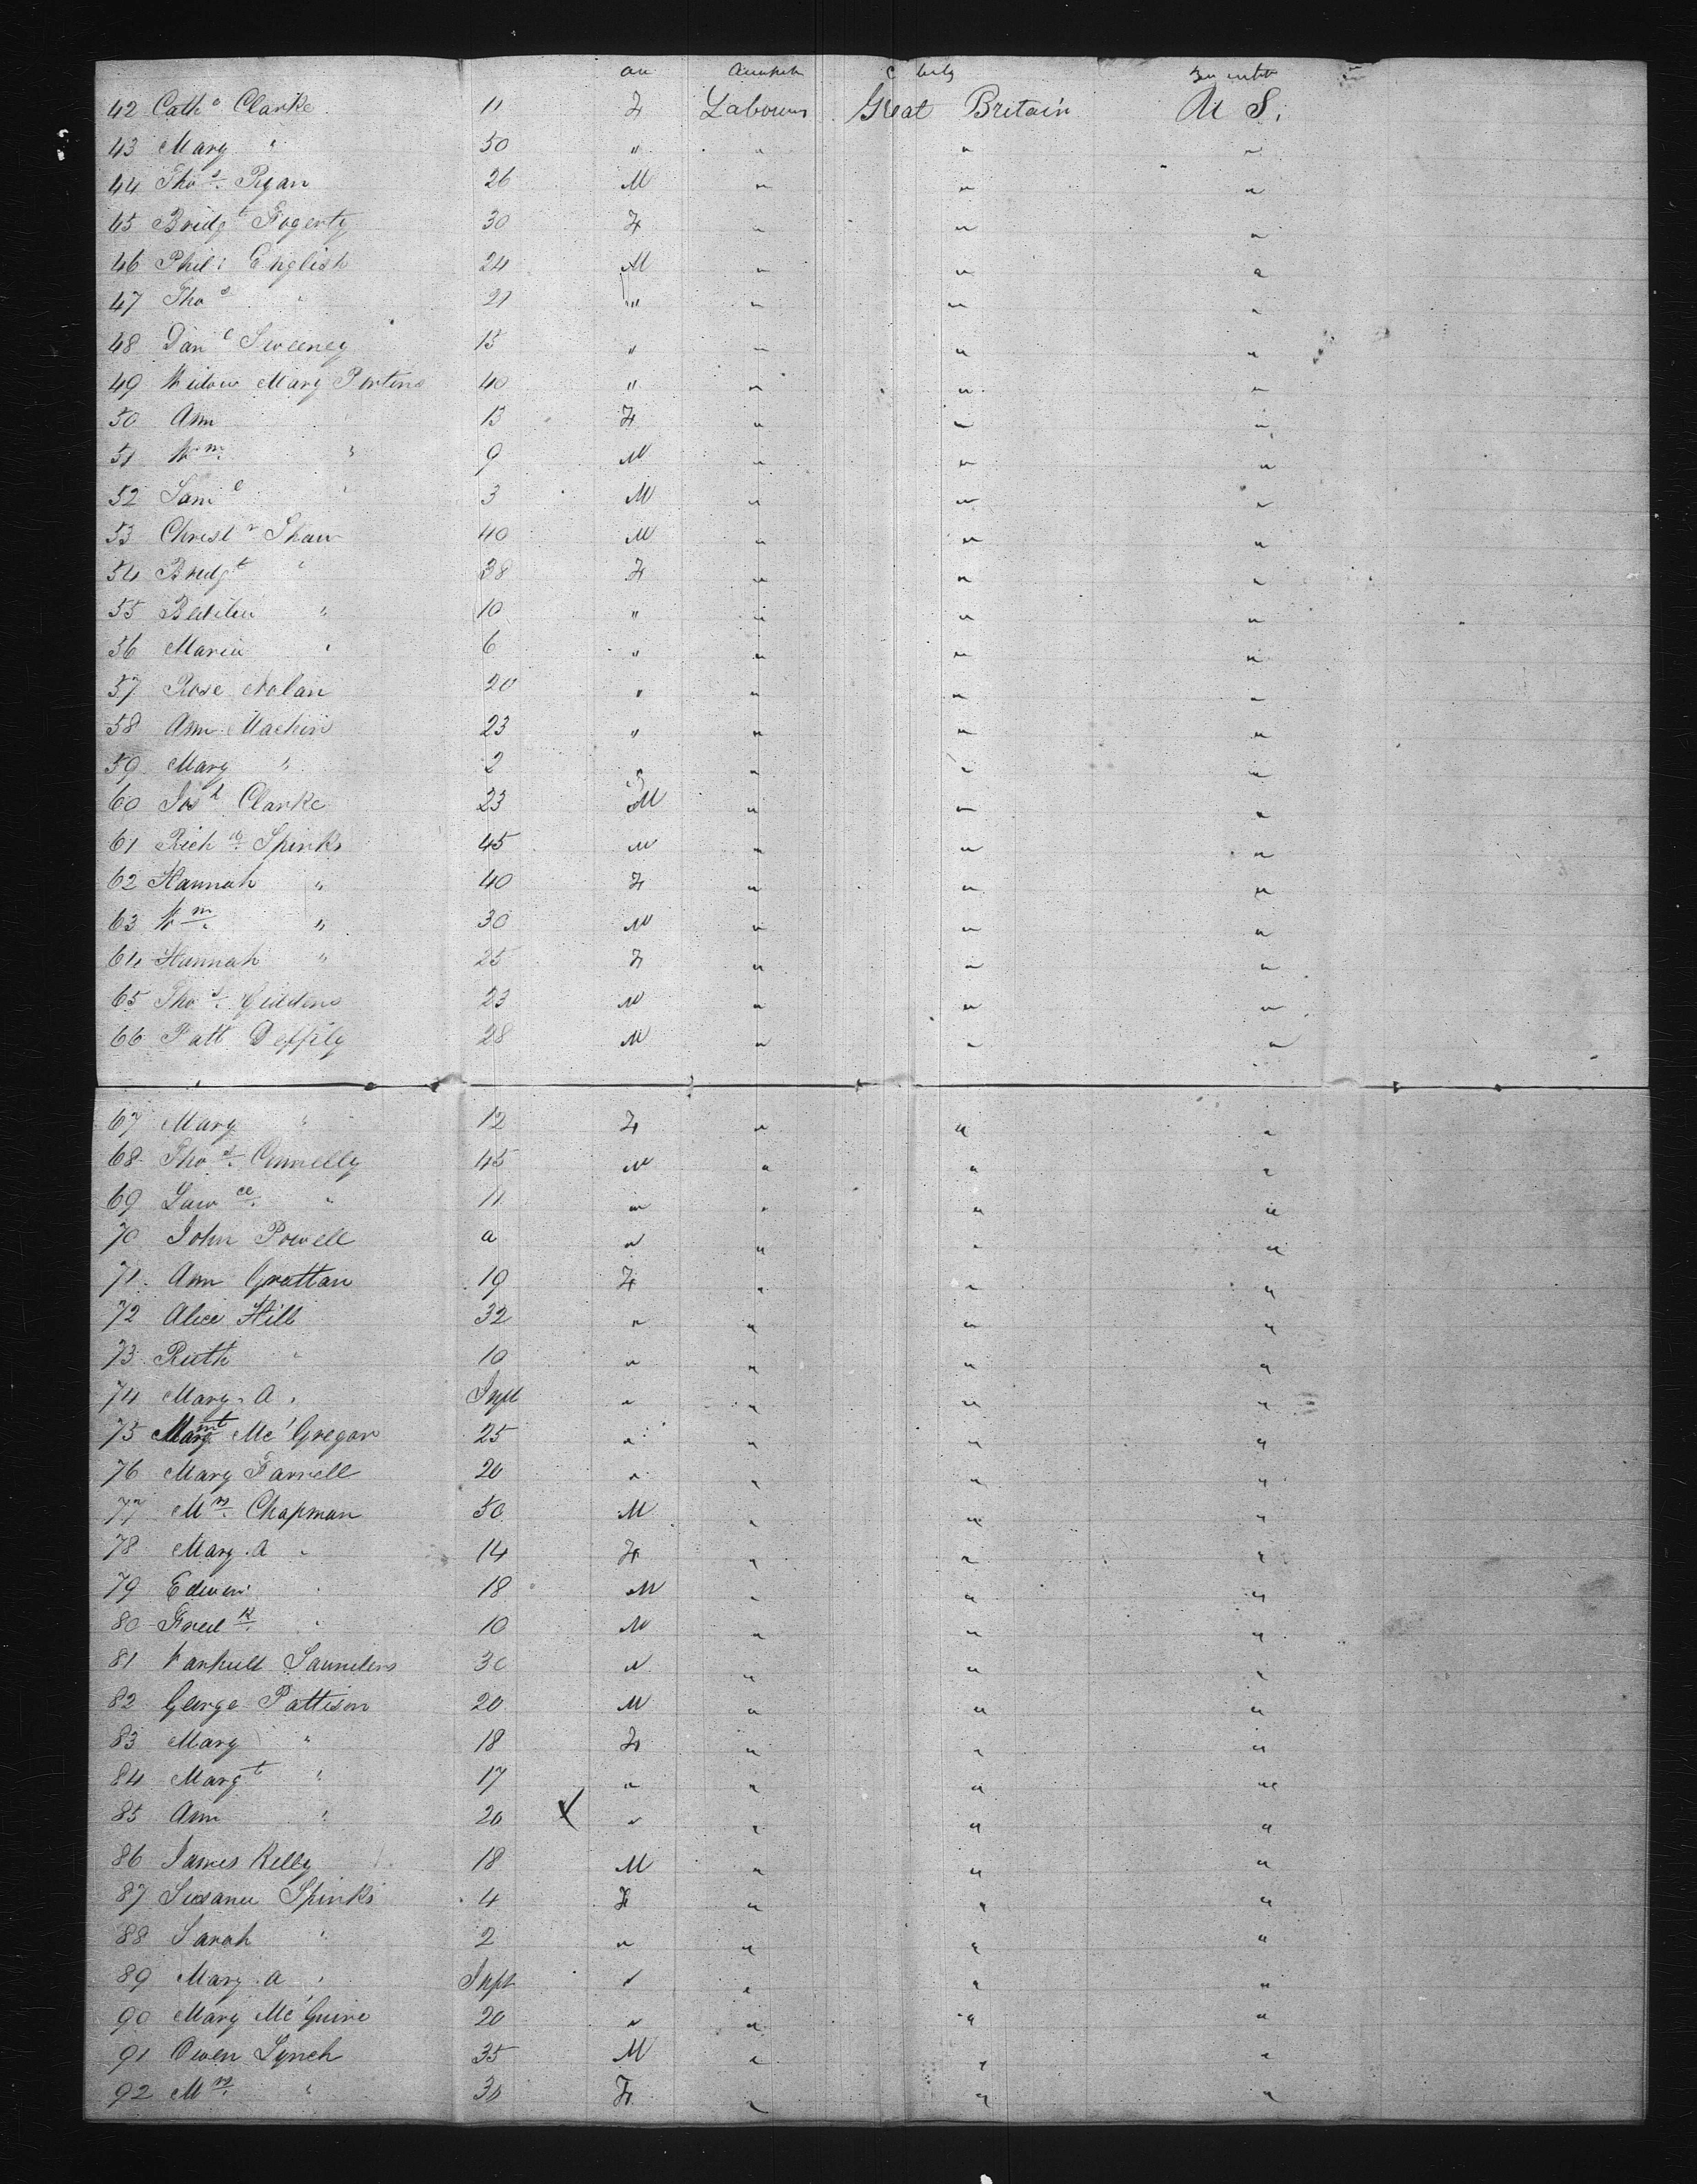 42 Cath e Clarke 11 F Labourers Great Britain U S.
43 Mary " 50 " " " "
44 Tho s. Ryan 26 M " " "
45 Bridg t Fogerty 30 F " " "
46 Phil: English 24 M " " "
47 Tho s " 21 " " " "
48 Dan l Sweeney 15 " " " "
49 Widow Mary 40 " " " "
50 Ann " 13 F " " "
51 W m. " 9 M " " "
52 Sam l " 3 M " " "
53 Christ r Shaw 40 M " " "
54 Bridg t " 38 F " " "
55 " 10 " " " "
56 Maria " 6 " " " "
57 Rose Nolan 20 " " " "
58 Ann Mackin 23 " " " "
59 Mary " 2 " " " "
60 Jos h Clarke 23 M " " "
61 Rich d. Spinks 45 M " " "
62 Hannah " 40 F " " "
63 W m. " 30 M " " "
64 Hannah " 25 F " " "
65 Tho s. Giddens 23 M " " "
66 Patt Deffily 28 M " " "
67 Mary " 12 F " " "
68 Tho s. Connelly 45 M " " "
69 Law ce. " 11 " " " "
70 John Powell a " " " "
71 Ann Grattan 19 F " " "
72 Alice Hill 32 " " " "
73 Ruth " 10 " " " "
74 Mary A " Inft " " " "
75 Marg mt Mc Gregor 25 " " " "
76 Mary Farrell 20 " " " "
77 M rs. Chapman 50 M " " "
78 Mary A " 14 F " " "
79 Edwin " 18 M " " "
80 Fred k. " 10 M " " "
81 Saunders 30 M " " "
82 George Pattison 20 M " " "
83 Mary " 18 F " " "
84 Marg t " 17 " " " "
85 Ann " 20 X " " " "
86 James Kelly 18 M " " "
87 Susanu Spinks 4 F " " "
88 Sarah " 2 " " " "
89 Mary A " Inft " " " "
90 Mary Mc Guire 20 " " " "
91 Owen Lynch 35 M " " "
92 M rs. " 30 F " " "